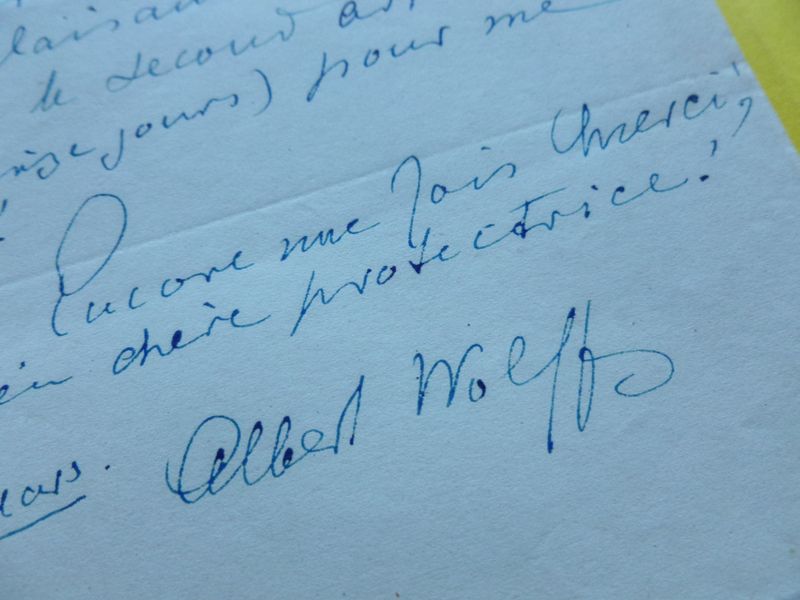 le second
jours) pour me
Encore une fois merci,
chère protectrice!
Albert Wolff